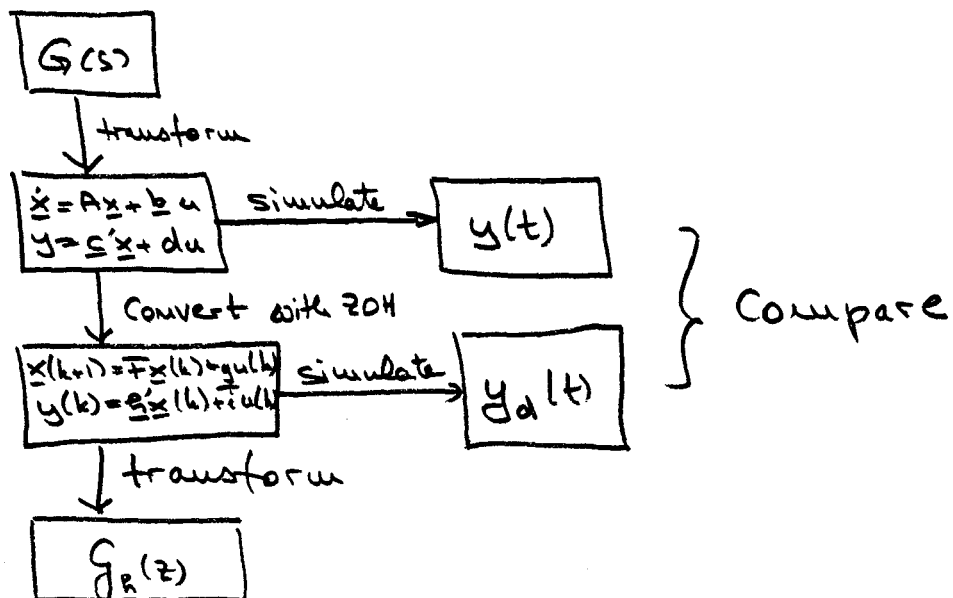 G(s)
transform
ẋ = Ax + bu
y = c'x + du
simulate
y(t)
Convert with ZOH
x(k+1) = Fx(k) + gu(k)
y(k) = x(k) + iu(k)
simulate
yd(t)
} Compare
transform
(z)